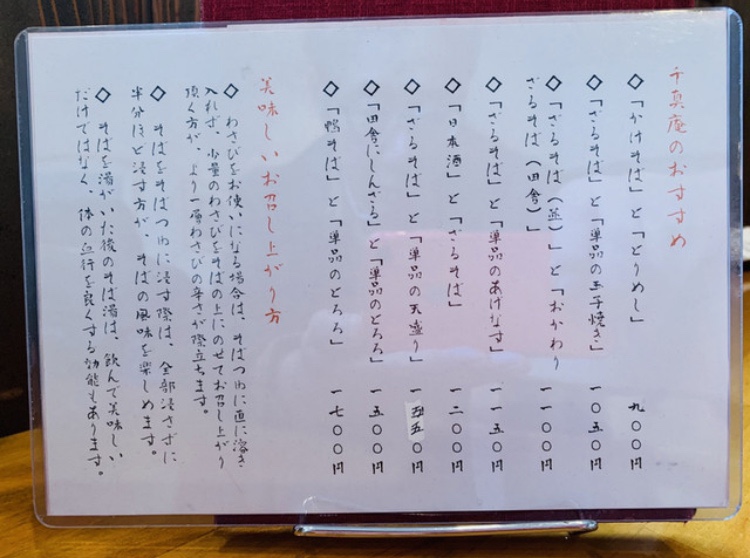 千真庵のおすすめ
◇「かけそば」と「とりめし」 九〇〇円
◇「ざるそば」と「単品の玉子焼き」 一〇五〇円
◇「ざるそば（並）」と「おかわり
ざるそば（田舎）」 一一〇〇円
◇「ざるそば」と「単品のあげなす」 一一五〇円
◇「日本酒」と「ざるそば」 一二〇〇円
◇「ざるそば」と「単品の天盛り」 一五五〇円
◇「田舎にしんざる」と「単品のとろろ」 一五〇〇円
◇「鴨そば」と「単品のとろろ」 一七〇〇円
美味しいお召し上がり方
◇ わさびをお使いになる場合は、そばつゆに直に溶き
入れず、少量のわさびをそばの上にのせてお召し上がり
頂く方が、より一層わさびの辛さが際立ちます。
◇ そばをそばつゆに浸す際は、全部浸さずに
半分ほど浸す方が、そばの風味を楽しめます。
◇ そばを湯がいた後のそば湯は、飲んで美味しい
だけではなく、体の血行を良くする効能もあります。